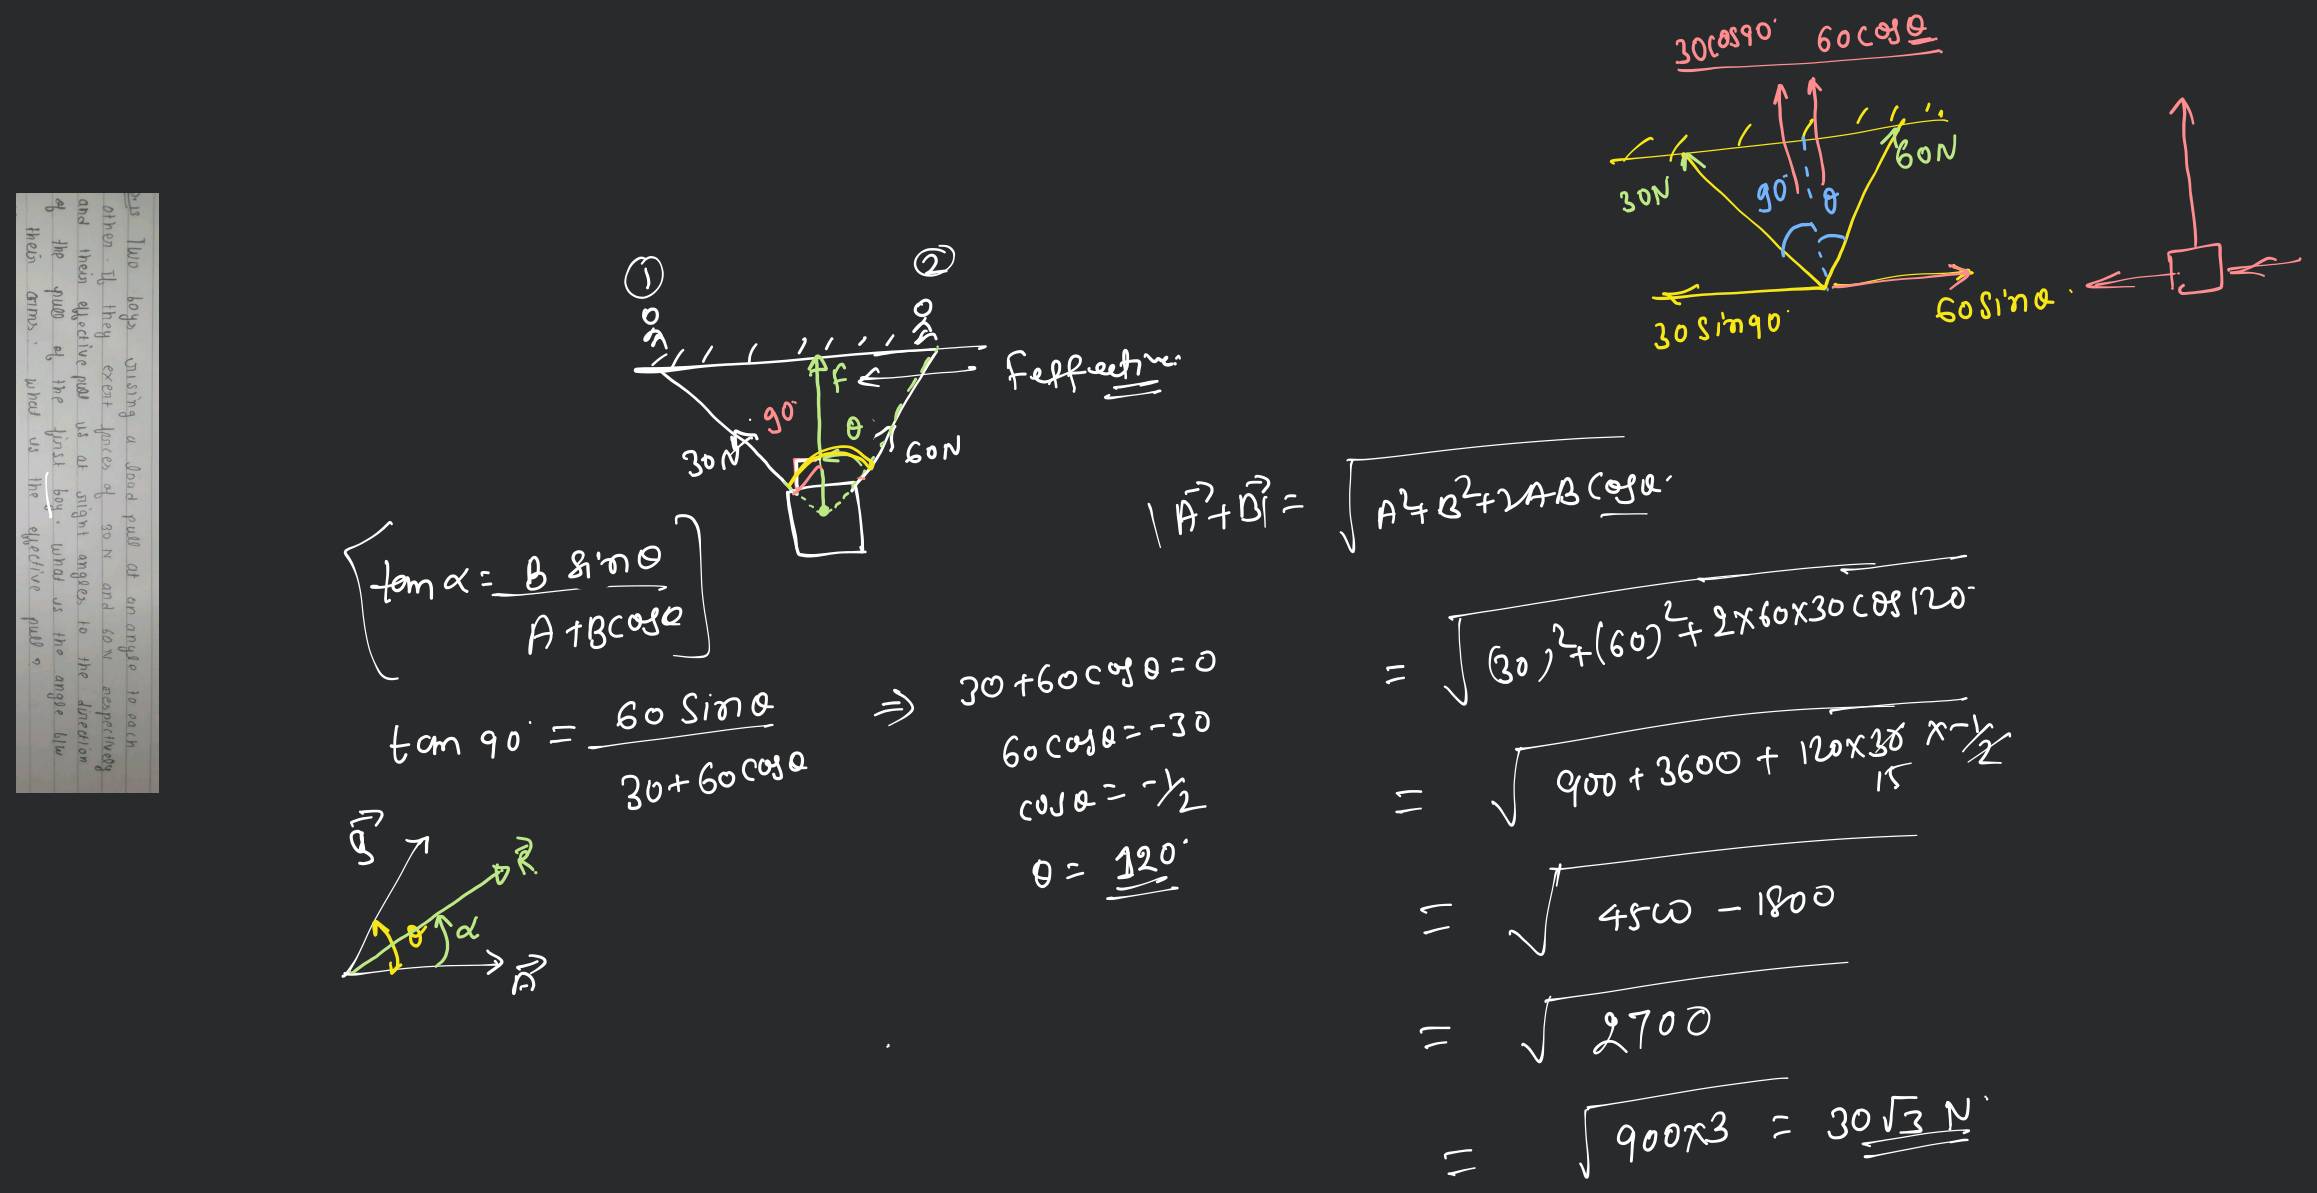 Two boys rising a load pull at an angle to each
other. If they exert forces of 30 N and 60 N respectively
and their effective pull is at right angles to the direction
of the pull of the first boy. what is the angle b/w
their arms. what is the effective pull?
①
②
F
Feffective
90°
θ
30N
60N
[tan α = B sin θ / A + B cos θ]
tan 90° = 60 sin θ / 30 + 60 cos θ
⇒ 30 + 60 cos θ = 0
60 cos θ = -30
cos θ = -1/2
θ = 120°
R
θ
α
30 cos 90° 60 cos θ
30N
60N
90°
θ
30 sin 90°
60 sin θ
|A + B| = √A² + B² + 2AB cos θ
= √(30)² + (60)² + 2 × 60 × 30 cos 120°
= √900 + 3600 + 120 × 30 × -1/2
15
= √4500 - 1800
= √2700
= √900 × 3 = 30√3 N